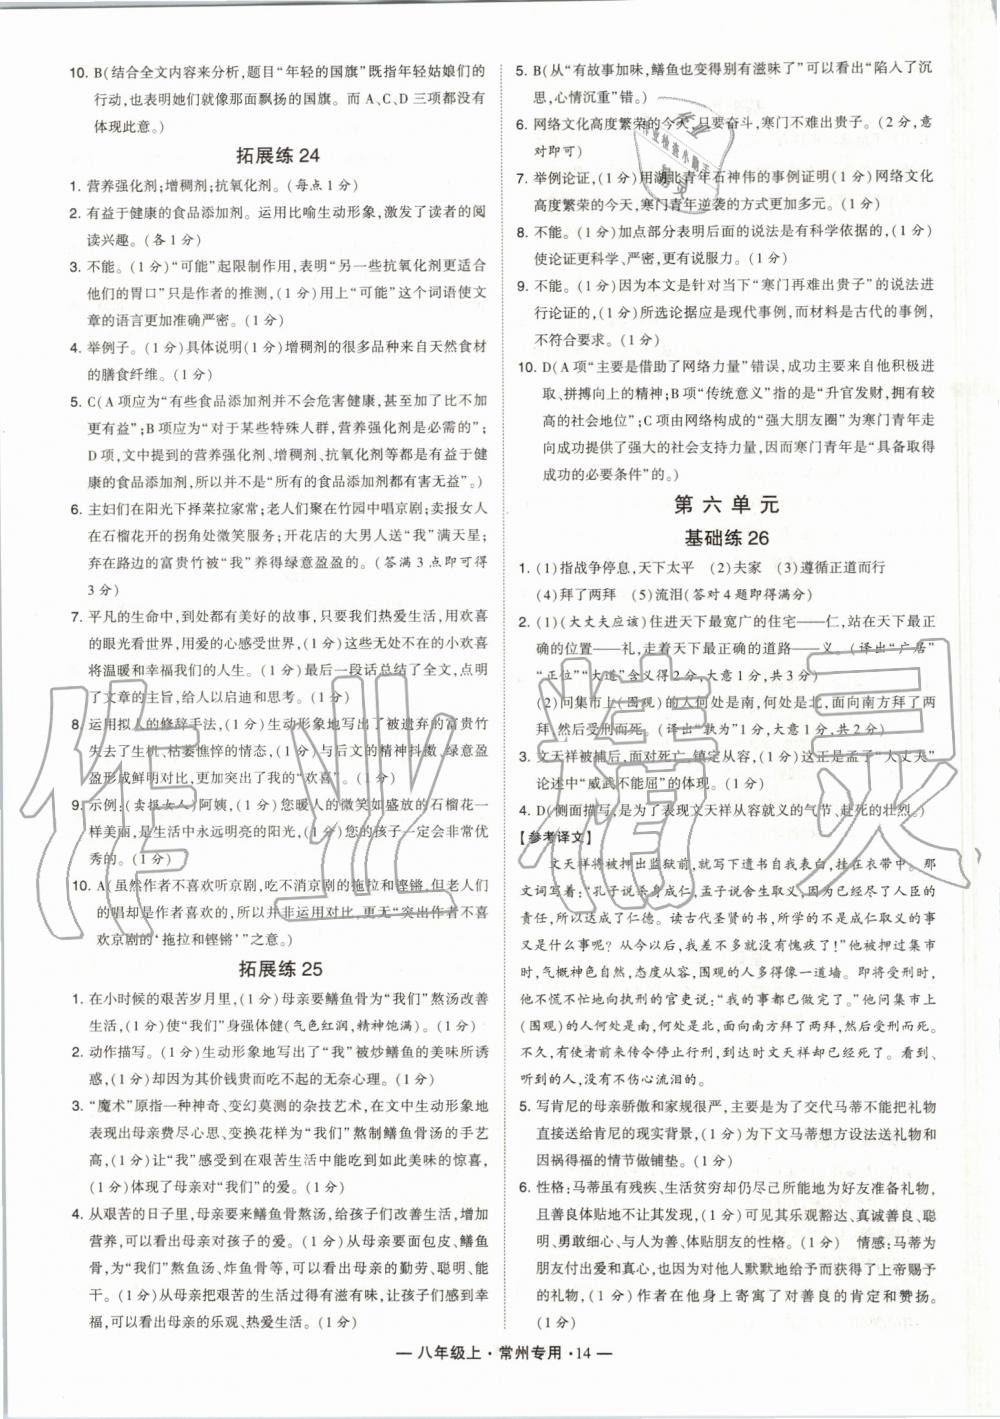 10. B(结合全文内容来分析,题目“年轻的国旗”既指年轻姑娘们的
行动,也表明她们就是那面飘扬的国旗。而 A、C、D 三项都没有
体现此意。)
拓展练 24
1. 营养强化剂;增稠剂;抗氧化剂。(每点 1 分)
2. 有益于健康的食品添加剂。运用比喻生动形象,激发了读者的阅
读兴趣。(各 1 分)
3. 不能。(1 分)“可能”起限制作用,表明“另一些抗氧化剂更适合
他们的胃口”只是作者的推测,(1 分)用上“可能”这个词语使文
章的语言更加准确严密。(1 分)
4. 举例子。(1 分)具体说明(1 分)增稠剂的很多品种来自天然食材
的膳食纤维。(1 分)
5. C(A 项应为“有些食品添加剂并不会危害健康,甚至对健康更加
更有益”;B 项应为“对于某些特殊人群,营养强化剂是必需的”;
D 项,文中提到的营养强化剂、增稠剂、抗氧化剂等都是有益于健
康的,所以不能说“所有的食品添加剂都有害无益”。)
6. 主妇们在阳光下择菜拉家常;老人们聚在竹园中唱京剧;卖报女人
在石榴花开的拐角处微笑服务;开花店的大男人送“我”满天星;
弃在路边的富贵竹被“我”养得绿意盈盈的。(答满 3 点即可得
3 分)
7. 平凡的生命中,到处都有美好的故事,只要我们热爱生活,用欢喜
的眼光看世界,用爱的心感受世界,(1 分)这些无处不在的小欢喜
将温暖和幸福我们的人生。(1 分)最后一段话总结了全文,点明
了文章的主旨,给人以启迪和思考。(1 分)
8. 运用拟人的修辞手法,(1 分)生动形象地写出了被遗弃的富贵竹
失去了生机、枯萎憔悴的情态,(1 分)与后文的精神抖擞、绿意盈
盈形成鲜明对比,更加突出了我的“欢喜”。(1 分)
9. 示例:(卖报女人)阿姨,(1 分)您暖人的微笑如盛放的石榴花一
样美丽,是生活中永远明亮的阳光,(1 分)您的孩子一定会非常优
秀的。(1 分)
10. A(虽然作者不喜欢听京剧,吃不消京剧的拖拉和铿锵,但老人们
的唱却是作者喜欢的,所以并非运用对比,更无“突出作者不喜
欢京剧的‘拖拉和铿锵’”之意。)
拓展练 25
1. 在小时候的艰苦岁月里,(1 分)母亲要鳝鱼骨为“我们”熬汤改善
生活,(1 分)使“我们”身强体健(气色红润,精神饱满)。(1 分)
2. 动作描写。(1 分)生动形象地写出了“我”被炒鳝鱼的美味所诱
惑,(1 分)却因为其价钱贵而吃不起的无奈心理。(1 分)
3. “魔术”原指一种神奇、变幻莫测的杂技艺术,在文中生动形象地
表现了母亲费尽心思、变换花样为“我们”熬制鳝鱼骨汤的手艺
高,(1 分)让“我”在艰苦生活中能吃到如此美味的惊喜,
(1 分)体现了母亲对“我们”的爱。(1 分)
4. 从艰苦的日子里,母亲要鳝鱼骨熬汤,给孩子们改善生活,增加
营养,可以看出母亲对孩子的爱。(1 分)从母亲要面包皮、鳝鱼
骨为“我们”熬鱼汤、炸鱼骨等,可以看出母亲的勤劳、聪明、能
干。(1 分)从母亲把艰苦的生活过得有滋有味,让孩子们感到快乐,
可以看出母亲的乐观、热爱生活。(1 分)
5. B(从“有故事加味,鳝鱼也变得别有滋味了”可以看出“陷入了沉
思,心情沉重”错。)
6. 网络文化高度繁荣的今天,只要奋斗,寒门不难出贵子。(2 分,意
对即可)
7. 举例论证,(1 分)用湖北青年石神伟的事例证明(1 分)网络文化
高度繁荣的今天,寒门青年逆袭的方式更加多元。(1 分)
8. 不能。(1 分)加点部分表明后面的说法是有科学依据的,(1 分)
使论证更科学、严密,更有说服力。(1 分)
9. 不能。(1 分)因为本文是针对当下“寒门再难出贵子”的说法进
行论证的,(1 分)所选论据应是现代事例,而材料是古代的事例,
不符合要求。(1 分)
10. D(A 项“主要是借助了网络力量”错误,成功主要来自他积极进
取、拼搏向上的精神;B 项“传统意义”指的是“升官发财,拥有较
高的社会地位”;C 项由网络构成的“强大朋友圈”为寒门青年走
向成功提供了强大的社会支持力量,因而寒门青年“具备取得
成功的必要条件”的。)
第 六 单 元
基础练 26
1. (1)指战争停息,天下太平 (2)夫家 (3)遵循正道而行
(4)拜了两拜 (5)流泪(答对 4 题即得满分)
2. (1)(大丈夫应该)住进天下最宽广的住宅——仁,站在天下最正
确的位置——礼,走着天下最正确的道路——义。(译出“广居”
“正位”“大道”含义得 2 分,大意 1 分,共 3 分)
(2)问集市上(围观)的人何处是南,何处是北,面向南方拜了两
拜,然后受刑而死。(译出“孰为”1 分,大意 1 分,共 2 分)
3. 文天祥被捕后,面对死亡,镇定从容,(1 分)这正是孟子“大丈夫”
论述中“威武不能屈”的体现。(1 分)
4. D(侧面描写,是为了表现文天祥从容就义的气节、赴死的壮烈。)
【参考译文】
文天祥将被押出监狱前,就写下遗书自我表白,挂在衣带中。那
文词写着:“孔子说杀身成仁,孟子说舍生取义,因为已经尽了人臣的
责任,所以达成了仁德。读古代圣贤的书,所学的不是成仁取义的事
又是什么事呢?从今以后,我差不多就没有愧疚了!”他被押到集市
时,气概神色自然,态度从容,围观的人多得像一道墙。即将受刑时,
他不慌不忙地向执刑的官吏说:“我的事都已做完了。”他问集市上
(围观)的人何处是南,何处是北,面向南方拜了两拜,然后受刑而死。
不久,有使者前来传令停止行刑,到达时文天祥却已经死了。看到、
听到的人,没有不伤心流泪的。
5. 写肯尼的母亲骄傲和家规很严,主要是为了交代马蒂不能把礼物
直接送给肯尼的现实背景,(1 分)为下文马蒂想方设法送礼物和
因祸得福的情节做铺垫。(1 分)
6. 性格:马蒂虽有残疾、生活贫穷却仍尽己所能地为好友准备礼物,
且善良得以德报怨,(1 分)可见其性格乐观豁达、真诚善良、聪
明、勇敢细心、与人为善、体贴朋友的性格。(1 分) 情感:马蒂付
出爱和真心,也一直有人默默地给予他关爱,他得到了上帝赐予
的礼物,(1 分)作者在他身上寄寓了对善良的肯定和赞扬。
(1 分)
— 八年级上·常州专用·14 —
作业精灵